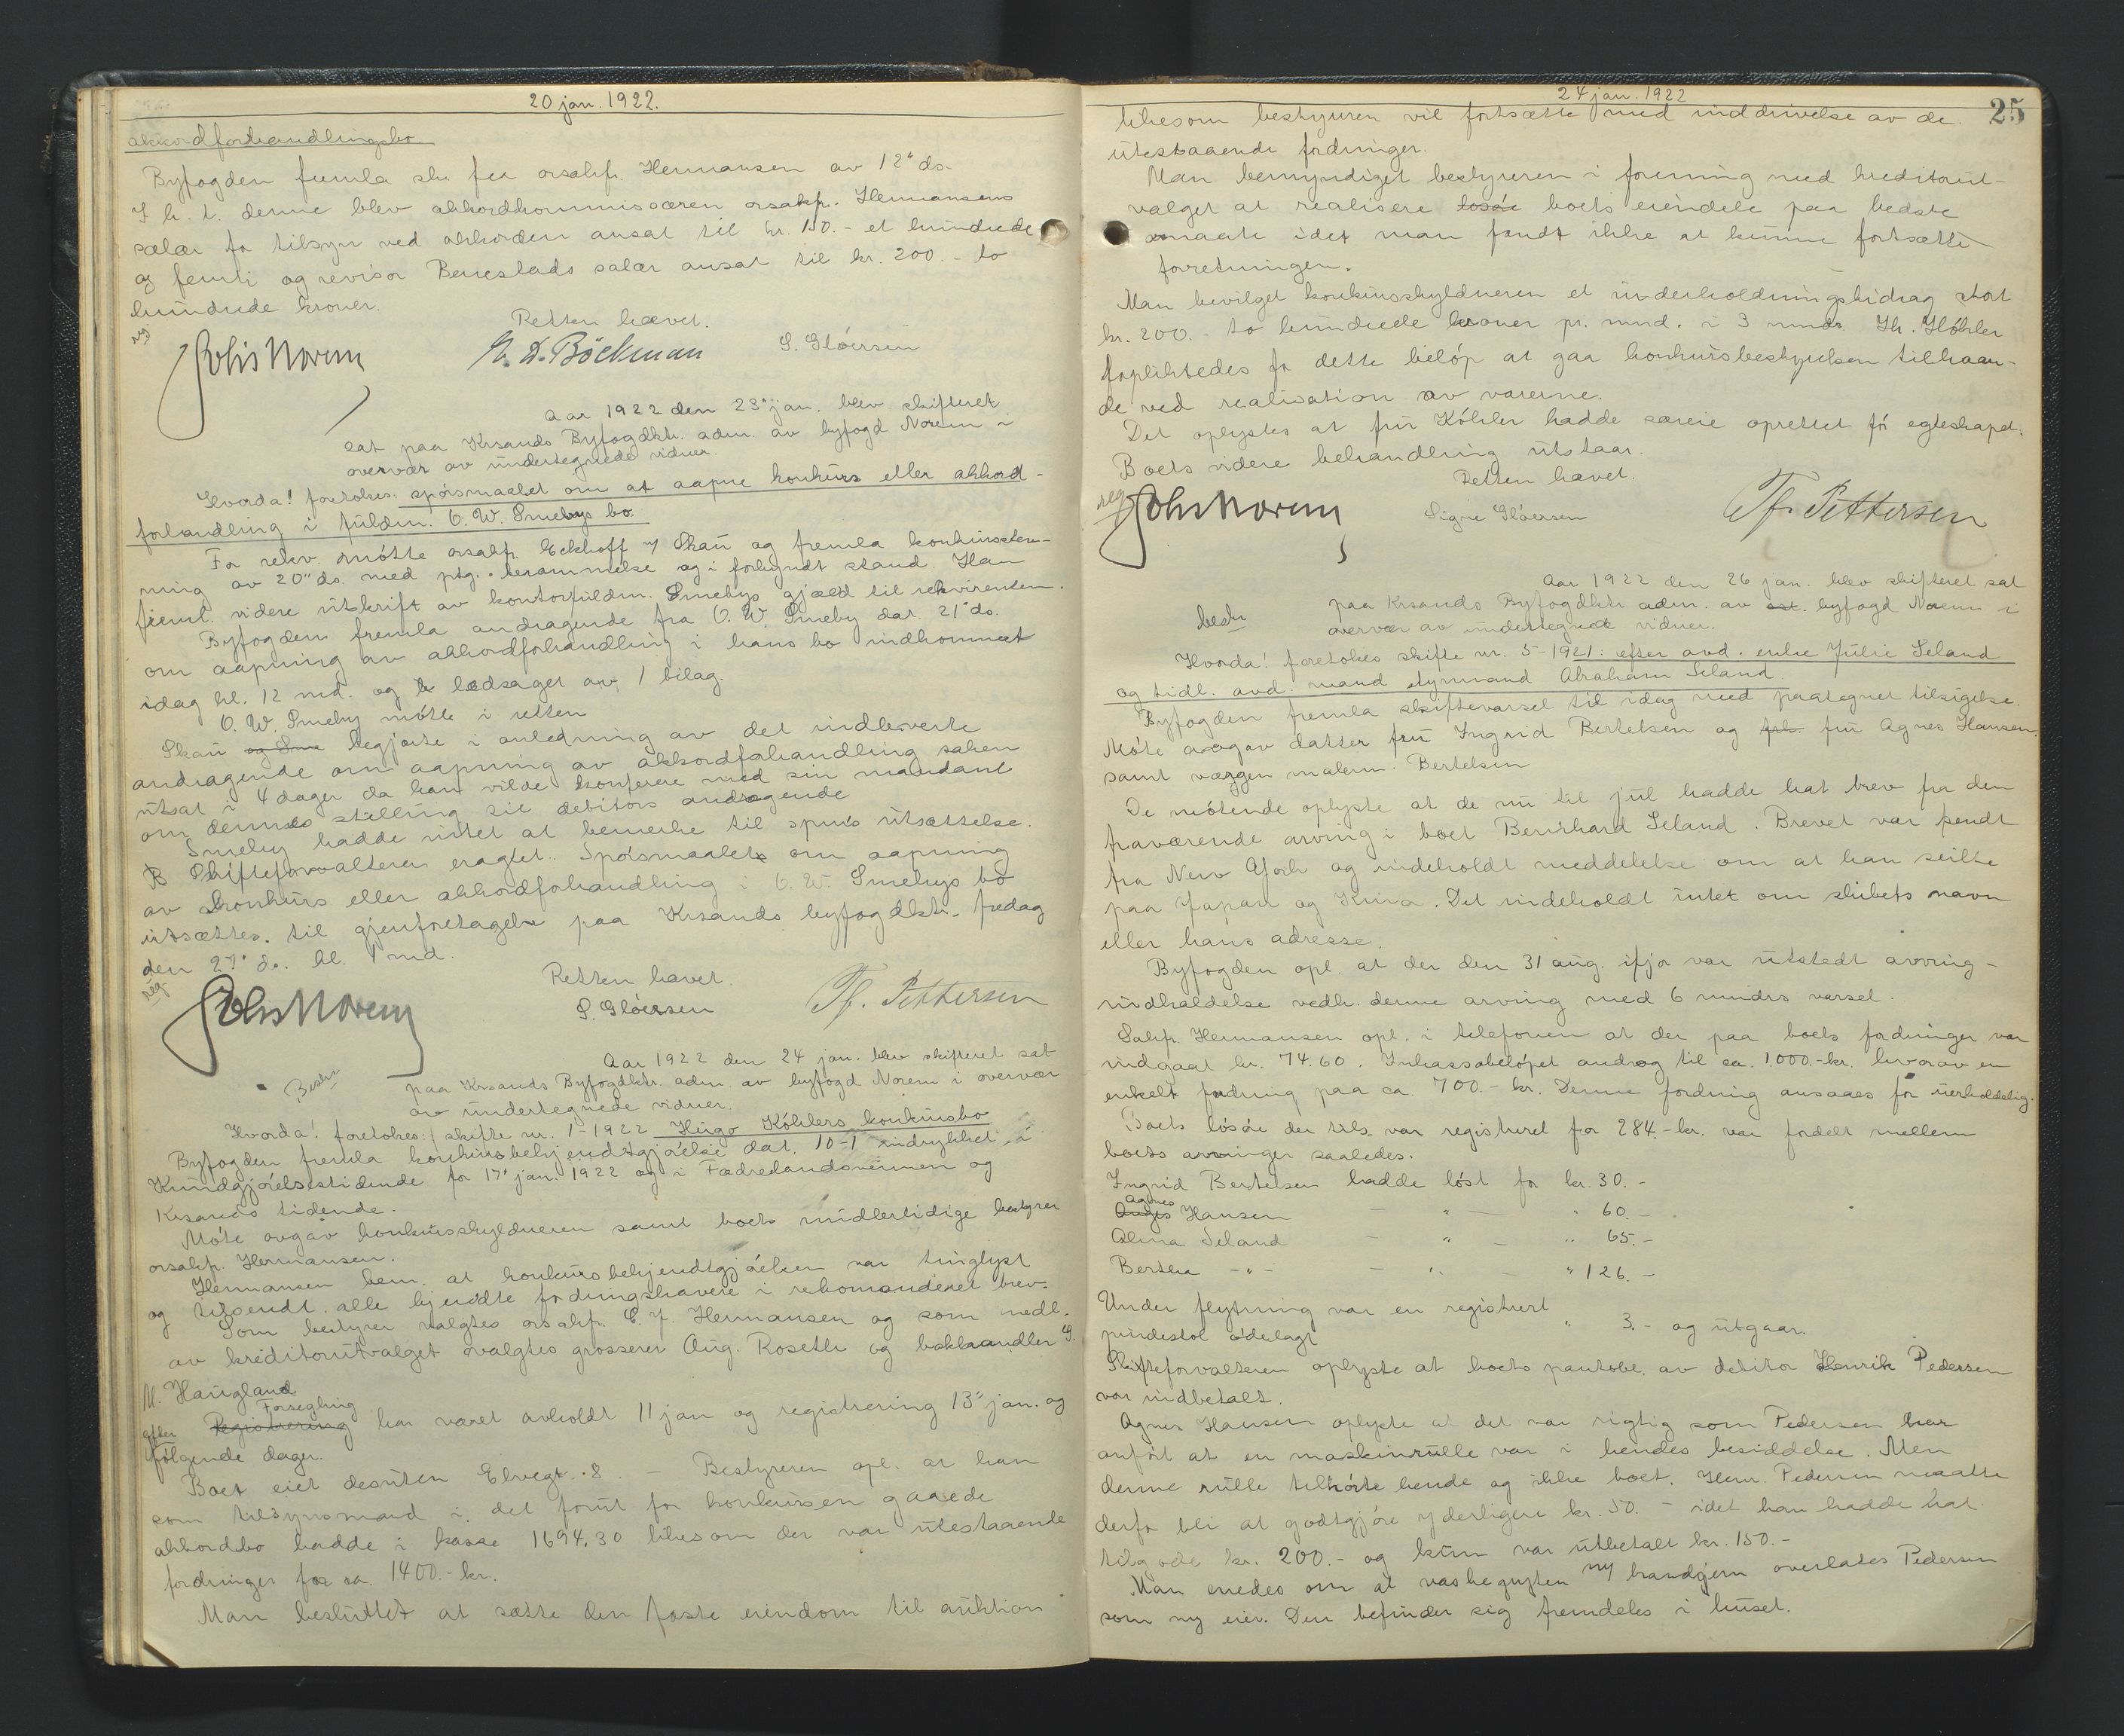 20 jan. 1922.
akkordforhandlingsbo
Byfogden fremla skr. fra orsakfr. Hermansen av 12' ds.
I h. t. denne blev akkordkommissæren orsakfr. Hermansens
salær for tilsyn ved akkorden ansat til kr. 150.- et hundrede
og femti og revisor Berrestads salær ansat til kr. 200.- to
hundrede kroner.
Retten hævet.
reg
Johs Norem
N. D. Böckman
S. Glóersen
Aar 1922 den 23' jan. blev skifteret
sat paa Krsands Byfogdktr. adm. av byfogd Norem i
overvær av undertegnede vidner.
Hvorda! foretokes: spórsmaalet om at aapne konkurs eller akkord-
forhandling i fuldm. O. W. Smebys bo.
For rekv. mótte orsakfr. Eckhoff v/ Skau og fremla konkursbere-
ning av 20" ds. med ptg. berammelse og i forkyndt stand. Han
freml. videre utskrift av kontorfuldm. Smebys gjæld til rekvirenten.
Byfogden fremla andragende fra O. W. Smeby dat. 21' ds.
om aapning av akkordforhandling i hans bo indkommet
idag kl. 12 md. og ledsaget av 1 bilag.
O. W. Smeby mótte i retten
Skau og Sme begjærte i anledning av det indleverte
andragende om aapning av akkordforhandling saken
utsat i 4 dager da han vilde konferere med sin mandant
om dennes stilling til debitors andragende
Smeby hadde intet at bemerke til spm's utsættelse.
Skifteforvalteren eragtet: Spórsmaalet om aapning
av konkurs eller akkordforhandling i O. W. Smebys bo
utsættes til gjenforetagelse paa Krsands byfogdktr. fredag
den 27' ds. kl. 1 md.
Retten hævet.
reg
Johs Norem
S. Glóersen
Tf. Pettersen
Aar 1922 den 24 jan. blev skifteret sat
Beskr
paa Krsands Byfogdktr. adm. av byfogd Norem i overvær
av undertegnede vidner.
Hvorda! foretokes: skifte nr. 1-1922 Hugo Kóhlers konkursbo
Byfogden fremla konkursbekjendtgjórelse dat. 10-1 indrykket i
Kundgjórelsestidende for 17' jan. 1922 og i Fædrelandsvennen og
Krsands tidende.
Móte avgav konkursskyldneren samt boets midlertidige bestyrer
orsakfr. Hermansen.
Hermansen bem. at konkursbekjendtgjórelsen var tinglyst
og tilsendt alle kjendte fordringshavere i rekomanderet brev.
Som bestyrer valgtes orsakfr. C. F. Hermansen og som medl.
av kreditorutvalget valgtes grosserer Aug. Roseth og bokhandler G.
M. Haugland
Forsegling
efter Registrering har været avholdt 11 jan og registrering 13" jan. og
fólgende dager.
Boet eiet desuten Elvegt. 8. - Bestyreren opl. at han
som tilsynsmand i det forut for konkursen gaaede
akkordbo hadde i kasse 1694.30 likesom der var utestaaende
fordringer for ca. 1400.- kr.
Man besluttet at sætte den faste eiendom til auktion
24 jan. 1922
25
likesom bestyreren vil fortsætte med inddrivelse av de
utestaaende fordringer.
Man bemyndiget bestyreren i forening med kreditorut-
valget at realisere lósóre boets eiendele paa bedste
maate idet man fandt ikke at kunne fortsætte
forretningen.
Man bevilget konkursskyldneren et underholdningsbidrag stort
kr. 200.- to hundrede kroner pr. mnd. i 3 mndr. Hr. Kóhler
forpliktedes for dette belóp at gaa konkursbestyrelsen tilhaan-
de ved realisation av varerne.
Det oplystes at fru Kóhler hadde særeie oprettet fór egteskapet.
Boets videre behandling utstaar.
Retten hævet.
reg
Johs Norem
Signe Glóersen
Tf. Pettersen
Aar 1922 den 26 jan. blev skifteret sat
beskr
paa Krsands Byfogdktr. adm. av byfogd Norem i
overvær av undertegnede vidner.
Hvorda! foretokes skifte nr. 5-1921: efter avd. enke Julie Seland
og tidl. avd. mand styrmand Abraham Seland.
Byfogden fremla skiftevarsel til idag med paategnet tilsigelse.
Móte avgav datter fru Ingrid Bertelsen og fru Agnes Hansen
samt malerm. Bertelsen
De mótende oplyste at de nu til jul hadde hat brev fra den
fraværende arving i boet Bernhard Seland. Brevet var sendt
fra New York og indeholdt meddelelse om at han seilte
paa Japan og Kina. Det indeholdt intet om skibets navn
eller hans adresse.
Byfogden opl. at der den 31 aug. ifjor var utstedt arving-
indkaldelse vedk. denne arving med 6 mndrs varsel.
Sakfr. Hermansen opl. i telefonen at der paa boets fordringer var
indgaat kr. 74.60. Inkassobelópet androg til ca. 1000.- kr. hvorav en
enkelt fordring paa ca. 700.- kr. Denne fordring ansaaes for uerholdelig.
Boets lósóre der tils. var registreret for 284.- kr. var fordelt mellem
boets arvinger saaledes:
Ingrid Bertelsen hadde lóst for kr. 30.-
Agnes
Anges Hansen - " - " 60.-
Alma Seland - " - " 65.-
Bertha - " - - " - " 126.-
Under flytning var en registrert
pindestol ódelagt " 3.- og utgaar.
Skifteforvalteren oplyste at boets pantobl. av debitor Henrik Pedersen
var indbetalt.
Agnes Hansen oplyste at det var rigtig som Pedersen har
anfórt at en maskinrulle var i hendes besiddelse. Men
denne rulle tilhórte hende og ikke boet. Henr. Pedersen maatte
derfor bli at godtgjóre yderligere kr. 50.- idet han hadde hat
tilgode kr. 200.- og kun var utbetalt kr. 150.-
Man enedes om at vaskegryten overlates Pedersen
som ny eier. Den befinder sig fremdeles i huset.